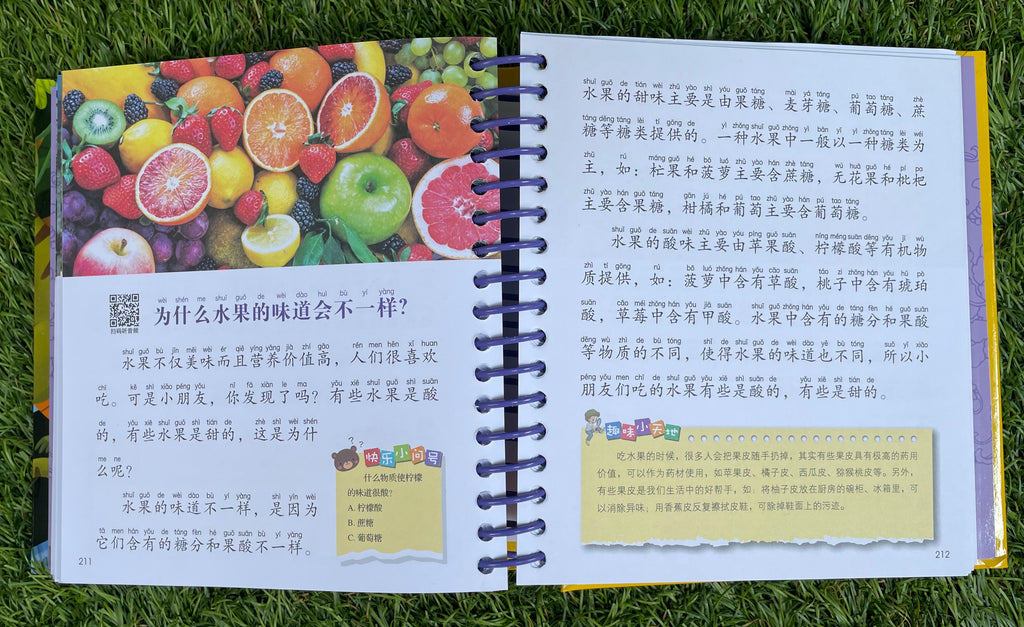 扫码听音频
wèi shén me shuǐ guǒ de wèi dào huì bù yí yàng
为什么水果的味道会不一样？
shuǐ guǒ bù jǐn měi wèi ér qiě yíng yǎng jià zhí gāo rén men hěn xǐ huan
水果不仅美味而且营养价值高，人们很喜欢
chī kě shì xiǎo péng yǒu nǐ fā xiàn le ma yǒu xiē shuǐ guǒ shì suān
吃。可是小朋友，你发现了吗？有些水果是酸
de yǒu xiē shuǐ guǒ shì tián de zhè shì wèi shén
的，有些水果是甜的，这是为什
me ne
么呢？
shuǐ guǒ de wèi dào bù yí yàng shì yīn wèi
水果的味道不一样，是因为
tā men hán yǒu de táng fèn hé guǒ suān bù yí yàng
它们含有的糖分和果酸不一样。
快乐小问号
什么物质使柠檬
的味道很酸？
A. 柠檬酸
B. 蔗糖
C. 葡萄糖
211
shuǐ guǒ de tián wèi zhǔ yào shì yóu guǒ táng mài yá táng pú tao táng zhè
水果的甜味主要是由果糖、麦芽糖、葡萄糖、蔗
táng děng táng lèi tí gōng de yì zhǒng shuǐ guǒ zhōng yì bān yǐ yì zhǒng táng lèi wéi
糖等糖类提供的。一种水果中一般以一种糖类为
zhǔ rú máng guǒ hé bō luó zhǔ yào hán zhè táng wú huā guǒ hé pí pa
主，如：杧果和菠萝主要含蔗糖，无花果和枇杷
zhǔ yào hán guǒ táng gān jú hé pú tao zhǔ yào hán pú tao táng
主要含果糖，柑橘和葡萄主要含葡萄糖。
shuǐ guǒ de suān wèi zhǔ yào yóu píng guǒ suān níng méng suān děng yǒu jī wù
水果的酸味主要由苹果酸、柠檬酸等有机物
zhì tí gōng rú bō luó zhōng hán yǒu cǎo suān táo zi zhōng hán yǒu hǔ pò
质提供，如：菠萝中含有草酸，桃子中含有琥珀
suān cǎo méi zhōng hán yǒu jiǎ suān shuǐ guǒ zhōng hán yǒu de táng fèn hé guǒ suān
酸，草莓中含有甲酸。水果中含有的糖分和果酸
děng wù zhì de bù tóng shǐ dé shuǐ guǒ de wèi dào yě bù tóng suǒ yǐ xiǎo
等物质的不同，使得水果的味道也不同，所以小
péng yǒu men chī de shuǐ guǒ yǒu xiē shì suān de yǒu xiē shì tián de
朋友们吃的水果有些是酸的，有些是甜的。
趣味小天地
吃水果的时候，很多人会把果皮随手扔掉，其实有些果皮具有极高的药用
价值，可以作为药材使用，如苹果皮、橘子皮、西瓜皮、猕猴桃皮等。另外，
有些果皮是我们生活中的好帮手，如：将柚子皮放在厨房的碗柜、冰箱里，可
以消除异味；用香蕉皮反复擦拭皮鞋，可除掉鞋面上的污迹。
212